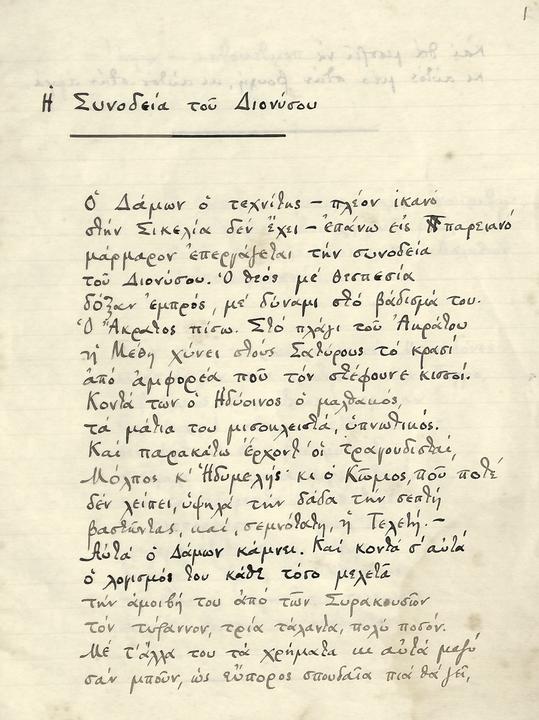 1
Ἡ Συνοδεία τοῦ Διονύσου
Ὁ Δάμων ὁ τεχνίτης — πλέον ἱκανό
στὴν Σικελία δὲν ἔχει — ἐπάνω εἰς παρειανό
μάρμαρον ἐπεργάζεται τὴν συνοδεία
τοῦ Διονύσου. Ὁ θεὸς μὲ θεσπεσία
δόξαν ἐμπρός, μὲ δύναμι στὸ βάδισμά του.
Ὁ Ἄκρατος πίσω. Στὸ πλάγι τοῦ Ἀκράτου
ἡ Μέθη χύνει στοὺς Σατύρους τὸ κρασὶ
ἀπὸ ἀμφορέα ποῦ τὸν στέφουνε κισσοί.
Κοντά των ὁ Ἡδύοινος ὁ μαλθακός,
τὰ μάτια του μισοκλειστά, ὑπνωτικός.
Καὶ παρακάτω ἔρχοντ' οἱ τραγουδισταί,
Μόλπος κ' Ἡδυμελής· κι ὁ Κῶμος, ποῦ ποτὲ
δὲν λείπει, ὑψηλὰ τὴν δᾶδα τὴν σεπτὴ
βαστῶντας, καί, σεμνότατη, ἡ Τελετή. —
Αὐτὰ ὁ Δάμων κάμνει. Καὶ κοντὰ σ' αὐτὰ
ὁ λογισμός του κάθε τόσο μελετᾶ
τὴν ἀμοιβή του ἀπὸ τῶν Συρακουσῶν
τὸν τύραννον, τρία τάλαντα, πολὺ ποσόν.
Μὲ τ' ἄλλα του τὰ χρήματα κι αὐτὰ μαζὺ
σὰν μποῦν, ὡς εὔπορος σπουδαῖα πιὰ θὰ ζεῖ,